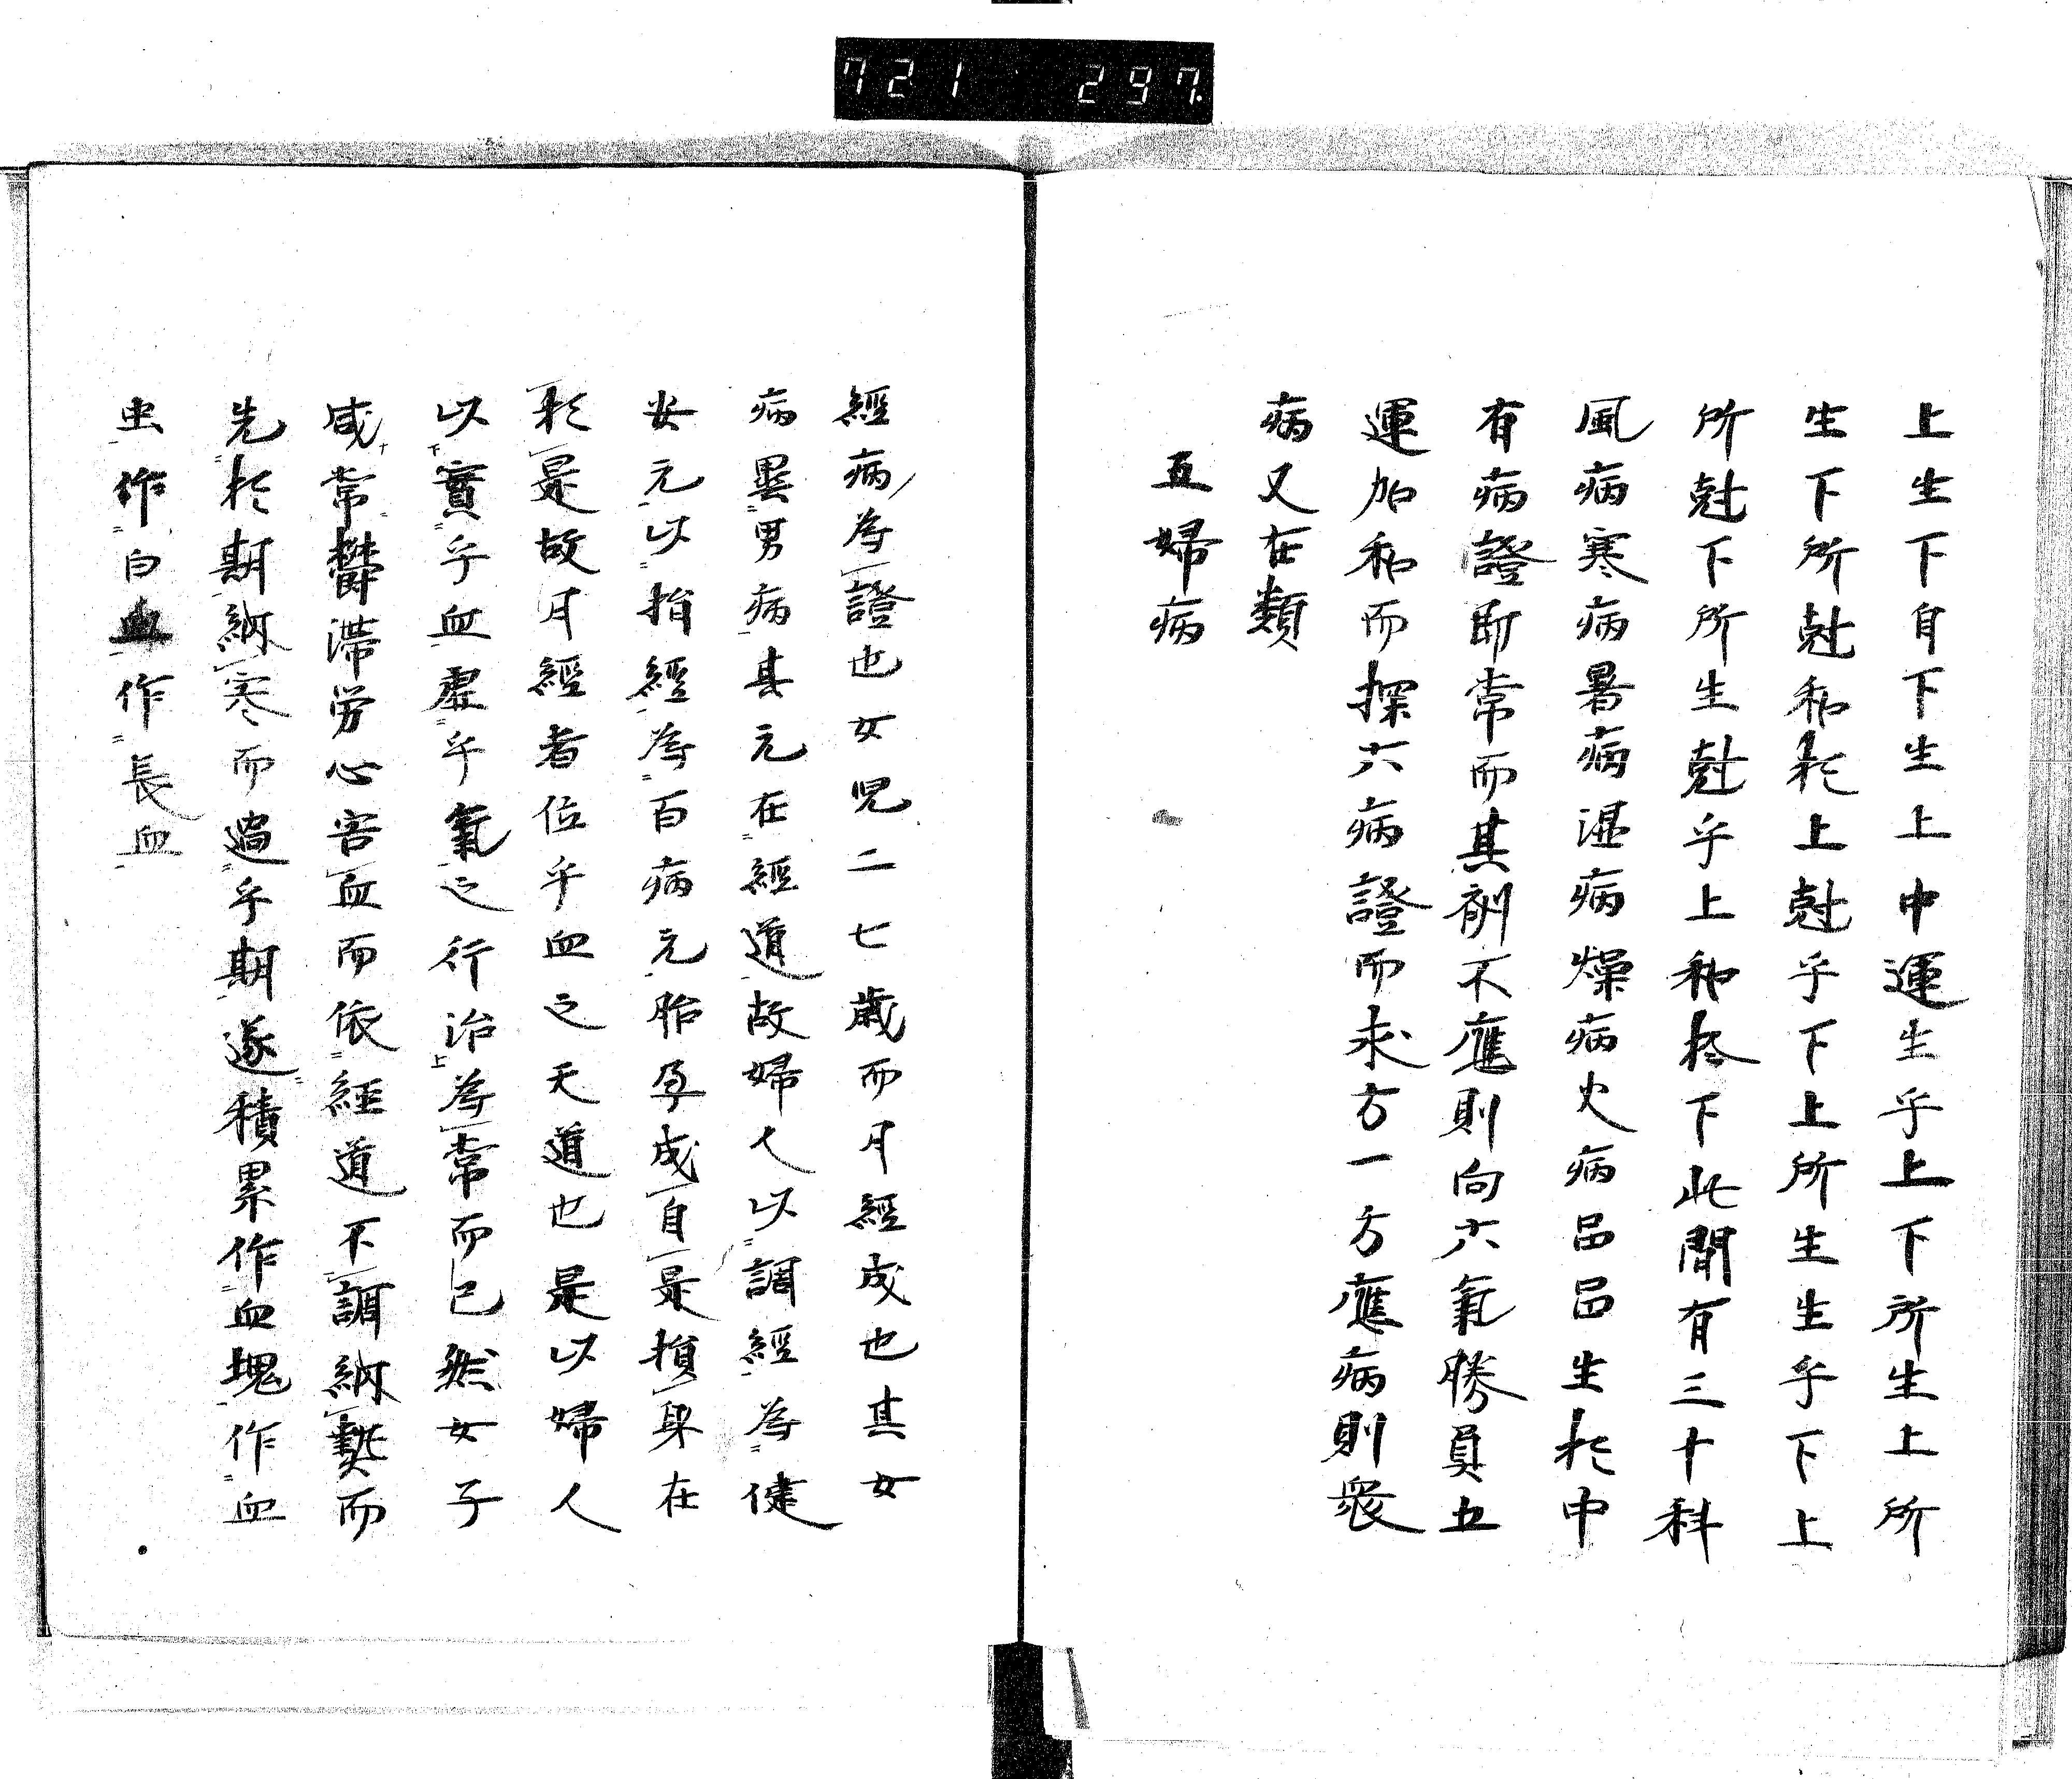 721 297
上生下自下生上中運生乎上下所生上所
生下所尅和於上尅乎下上所生生乎下上
所尅下所生尅乎上和於下此間有三十科
風病寒病暑病湿病燥病火病品品生於中
有病證即常而其剤不應則向六氣勝負五
運加和而探六病證而求方一方應病則衆
病又在類
五婦病
經病為證也女児二七歳而月經成也其女
病異男病其元在經道故婦人以調經為健
女元以損經為百病元胎孕成自是損身在
於是故月經者位乎血之天道也是以婦人
以實乎血虚乎氣之行治為常而已然女子
咸常欝滞労心害血而依經道不調納熱而
先於期納寒而過乎期遂積累作血塊作血
虫作白血作長血